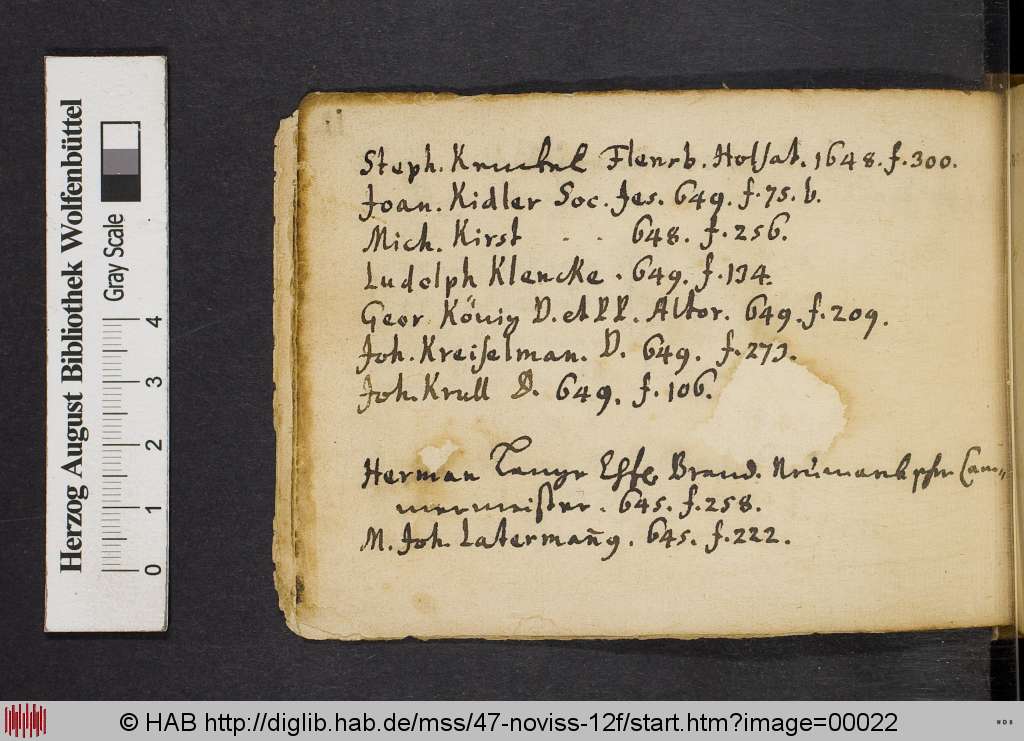 Steph. Flensb. Holsat. 1648. f. 300.
Joan. Kidler Soc. Jes. 649. f. 75. b.
Mich. Kirst . . 648. f. 256.
Ludolph Klencke . 649. f. 134.
Geor. König D. et P.P. Altor. 649. f. 209.
Joh. Kreiselman. D. 649. f. 273.
Joh. Krull D. 649. f. 106.
Herman Lange Brand. Neumarkischer Cam=
mermeister. 645. f. 258.
M. Joh. Laterman̄g. 645. f. 222.
Herzog August Bibliothek Wolfenbüttel
Gray Scale
0 1 2 3 4
© HAB http://diglib.hab.de/mss/47-noviss-12f/start.htm?image=00022